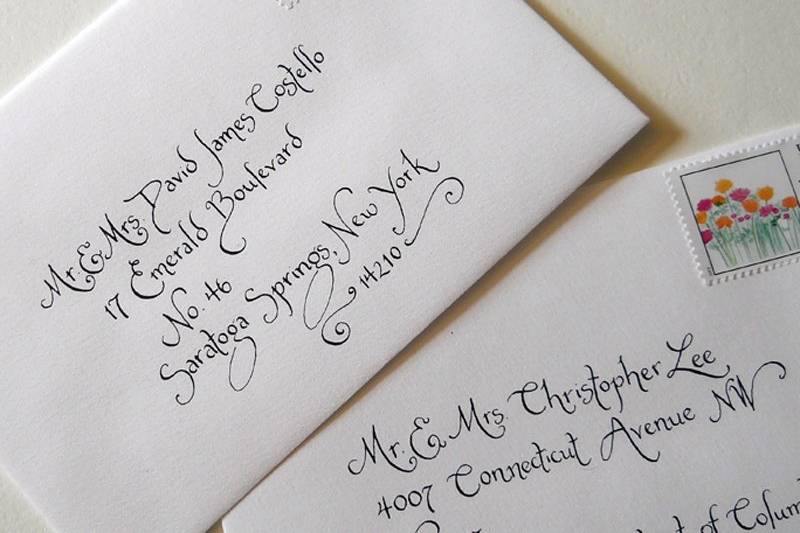 Mr. & Mrs. David James Costello
17 Emerald Boulevard
No. 46
Saratoga Springs, New York
14210
Mr. & Mrs. Christopher Lee
4007 Connecticut Avenue NW
of Colum